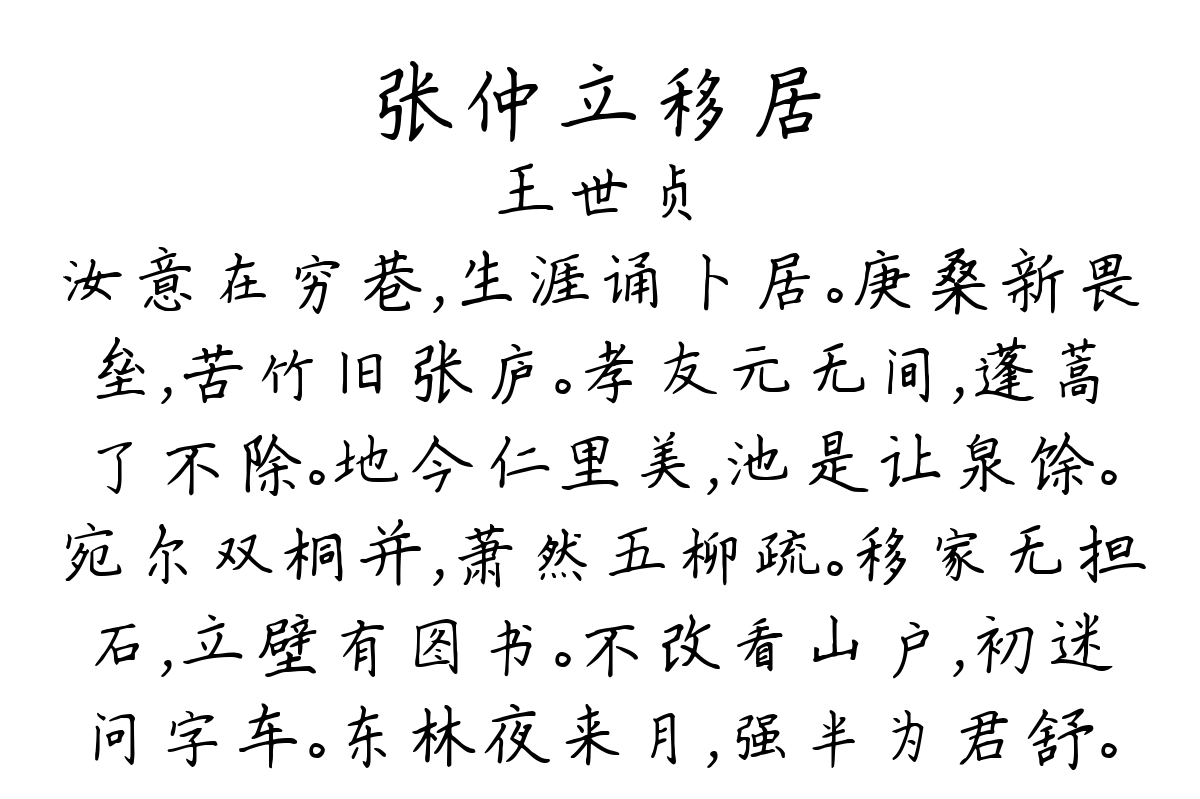 张仲立移居
王世贞
汝意在穷巷,生涯诵卜居。庚桑新畏
垒,苦竹旧张庐。孝友元无间,蓬蒿
了不除。地今仁里美,池是让泉馀。
宛尔双桐并,萧然五柳疏。移家无担
石,立壁有图书。不改看山户,初迷
问字车。东林夜来月,强半为君舒。